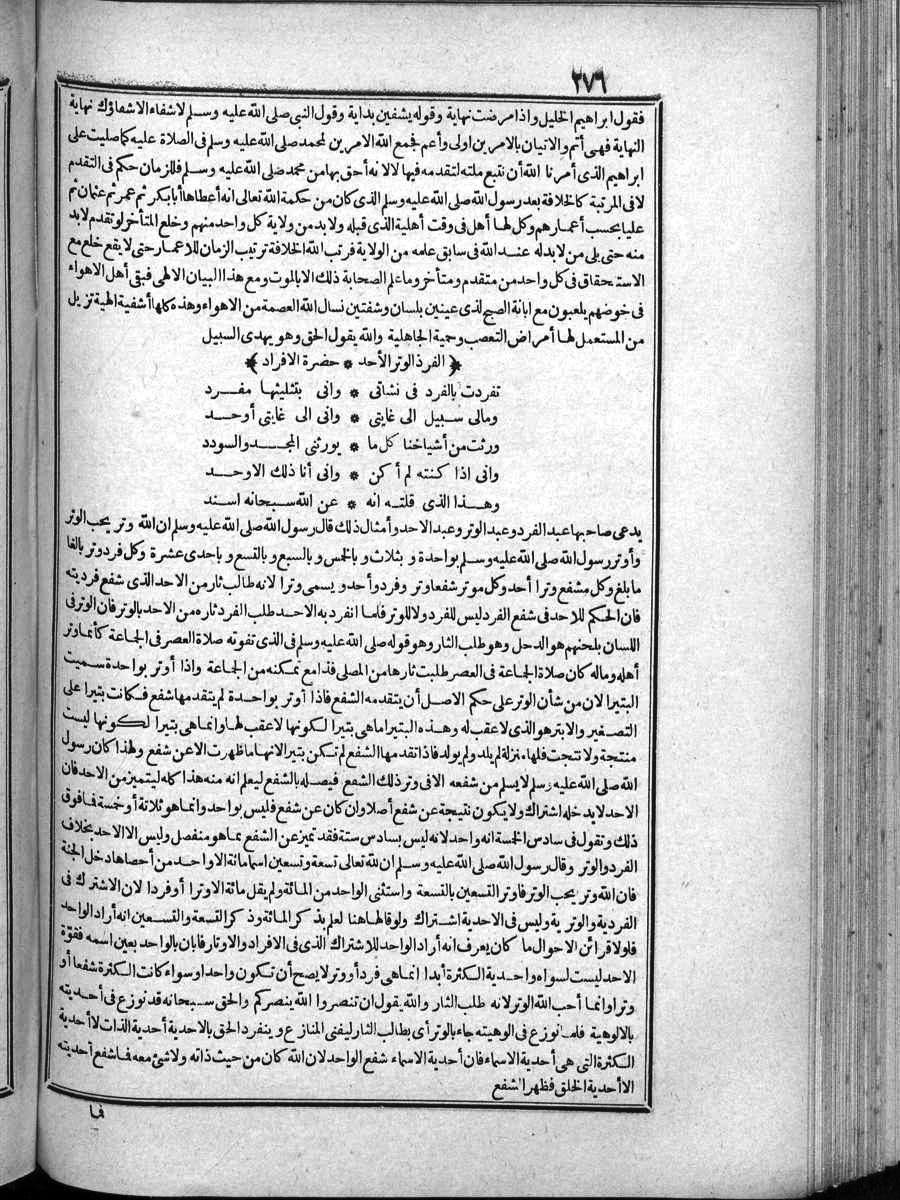 ٢٧٦
فقول ابراهيم الخليل واذا مرضت نهاية وقوله يشفين بداية وقول النبي صلى الله عليه وسلم لاشفاء الاشفاؤك نهاية
النهاية فهى أتم والاتيان بالامرين اولى وأعم فجمع الله الامرين لمحمد صلى الله عليه وسلم فى الصلاة عليه كما صليت على
ابراهيم الذى أمرنا الله أن نتبع ملته لتقدمه فيها لا لانه أحق بها من محمد صلى الله عليه وسلم فللزمان حكم فى التقدم
لا فى المرتبة كالخلافة بعد رسول الله صلى الله عليه وسلم الذى كان من حكمة الله تعالى انه أعطاها أبا بكر ثم عمر ثم عثمان ثم
عليا بحسب أعمارهم وكل لها أهل فى وقت أهلية الذى قبله ولا بد من ولاية كل واحد منهم وخلع المتأخر لو تقدم لا بد
منه حتى يلى من لا بد له عند الله فى سابق علمه من الولاية فرتب الله الخلافة ترتيب الزمان للاعمار حتى لا يقع خلع مع
الاستحقاق فى كل واحد من متقدم ومتأخر وما علم الصحابة ذلك الا بالموت ومع هذا البيان الالهى فبقى أهل الاهواء
فى خوضهم يلعبون مع ابانة الصبح لذى عينين بلسان وشفتين نسال الله العصمة من الاهواء وهذه كلها أشفية الهية تزيل
من المستعمل لها أمراض التعصب وحمية الجاهلية والله يقول الحق وهو يهدى السبيل
﴿ الفرد الوتر الأحد * حضرة الافراد ﴾
تفردت بالفرد فى نشأتى * وانى بتثليثها مفرد
ومالى سبيل الى غايتى * وانى الى غايتى أوحد
ورثت من أشياخنا كل ما * يورثنى المجد والسودد
وانى اذا كنته لم أكن * وانى أنا ذلك الاوحد
وهذا الذى قلته انه * عن الله سبحانه اسند
يدعى صاحبها عبد الفرد وعبد الوتر وعبد الاحد وأمثال ذلك قال رسول الله صلى الله عليه وسلم ان الله وتر يحب الوتر
وأوتر رسول الله صلى الله عليه وسلم بواحدة و بثلاث و بالخمس و بالسبع و بالتسع و باحدى عشرة وكل فرد وتر بالغا
ما بلغ وكل مشفع وترا أحد وكل موتر شفعا وتر وفرد وأحد و يسمى وترا لانه طالب ثار من الاحد الذى شفع فرديته
فان الحكم للاحد فى شفع الفرد ليس للفرد ولا للوتر فلما انفرد به الاحد طلب الفرد ثاره من الاحد بالوتر فان الوتر فى
اللسان بلحنهم هو الدحل وهو طلب الثار وهو قوله صلى الله عليه وسلم فى الذى تفوته صلاة العصر فى الجماعة كأنما وتر
أهله وماله كان صلاة الجماعة فى العصر طلبت ثارها من المصلى فذا مع تمكنه من الجماعة واذا أوتر بواحدة سميت
البتيرا لان من شأن الوتر على حكم الاصل أن يتقدمه الشفع فاذا أوتر بواحدة لم يتقدمها شفع فكانت بتيرا على
التصغير والابتر هو الذى لا عقب له وهذه البتيرا ماهى بتيرا لكونها لا عقب لها وانما هى بتيرا لكونها ليست
منتجة ولا نتجت فلها منزلة لم يلد ولم يولد فاذا تقدمها الشفع لم تكن بتيرا لانها ما ظهرت الا عن شفع ولهذا كان رسول
الله صلى الله عليه وسلم لا يسلم من شفعه الا فى وتر ذلك الشفع فيصله بالشفع ليعلم انه منه هذا كله ليتميز من الاحد فان
الاحد لا يدخله اشتراك ولا يكون نتيجة عن شفع أصلا وان كان عن شفع فليس بواحد وانما هو ثلاثة أو خمسة فما فوق
ذلك وتقول فى سادس الخمسة انه واحد لانه ليس بسادس ستة فقد تميز عن الشفع بما هو منفصل وليس الا الاحد بخلاف
الفرد والوتر وقال رسول الله صلى الله عليه وسلم ان لله تعالى تسعة وتسعين اسما مائة الا واحد من أحصاها دخل الجنة
فان الله وتر يحب الوتر فاوتر التسعين بالتسعة واستثنى الواحد من المائة ولم يقل مائة الا وترا أو فردا لان الاشتراك فى
الفردية والوترية وليس فى الاحدية اشتراك ولو قالها هنا لعلم بذكر المائة وذكر التسعة والتسعين انه أراد الواحد
فلولا قرائن الاحوال ما كان يعرف انه أراد الواحد للاشتراك الذى فى الافراد والاوتار فابان بالواحد بعين اسمه فقوّة
الاحد ليست لسواه واحدية الكثرة أبدا انما هى فرد أو وتر لا يصح أن تكون واحدا وسواء كانت الكثرة شفعا أو
وترا وانما أحب الله الوتر لانه طلب الثار والله يقول ان تنصروا الله ينصركم والحق سبحانه قد نوزع فى أحديته
بالالوهية فلما نوزع فى الوهيته جاء بالوتر أى بطالب الثار ليفنى المنازع و ينفرد الحق بالاحدية أحدية الذات لا أحدية
الكثرة التى هى أحدية الاسماء فان أحدية الاسماء شفع الواحد لان الله كان من حيث ذاته ولا شئ معه فما شفع أحديته
الا أحدية الخلق فظهر الشفع
فما